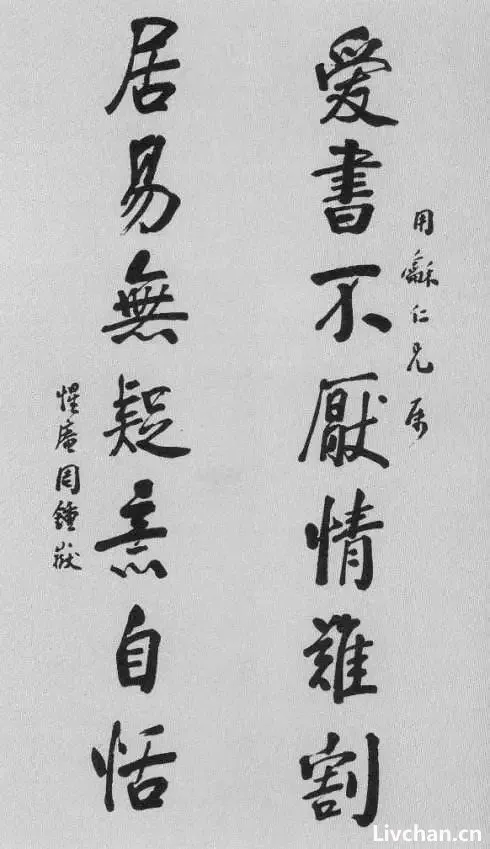 用龢仁兄属
爱書不厭情難割
居易無疑意自恬
惺庵周鍾嶽
Livchan.cn